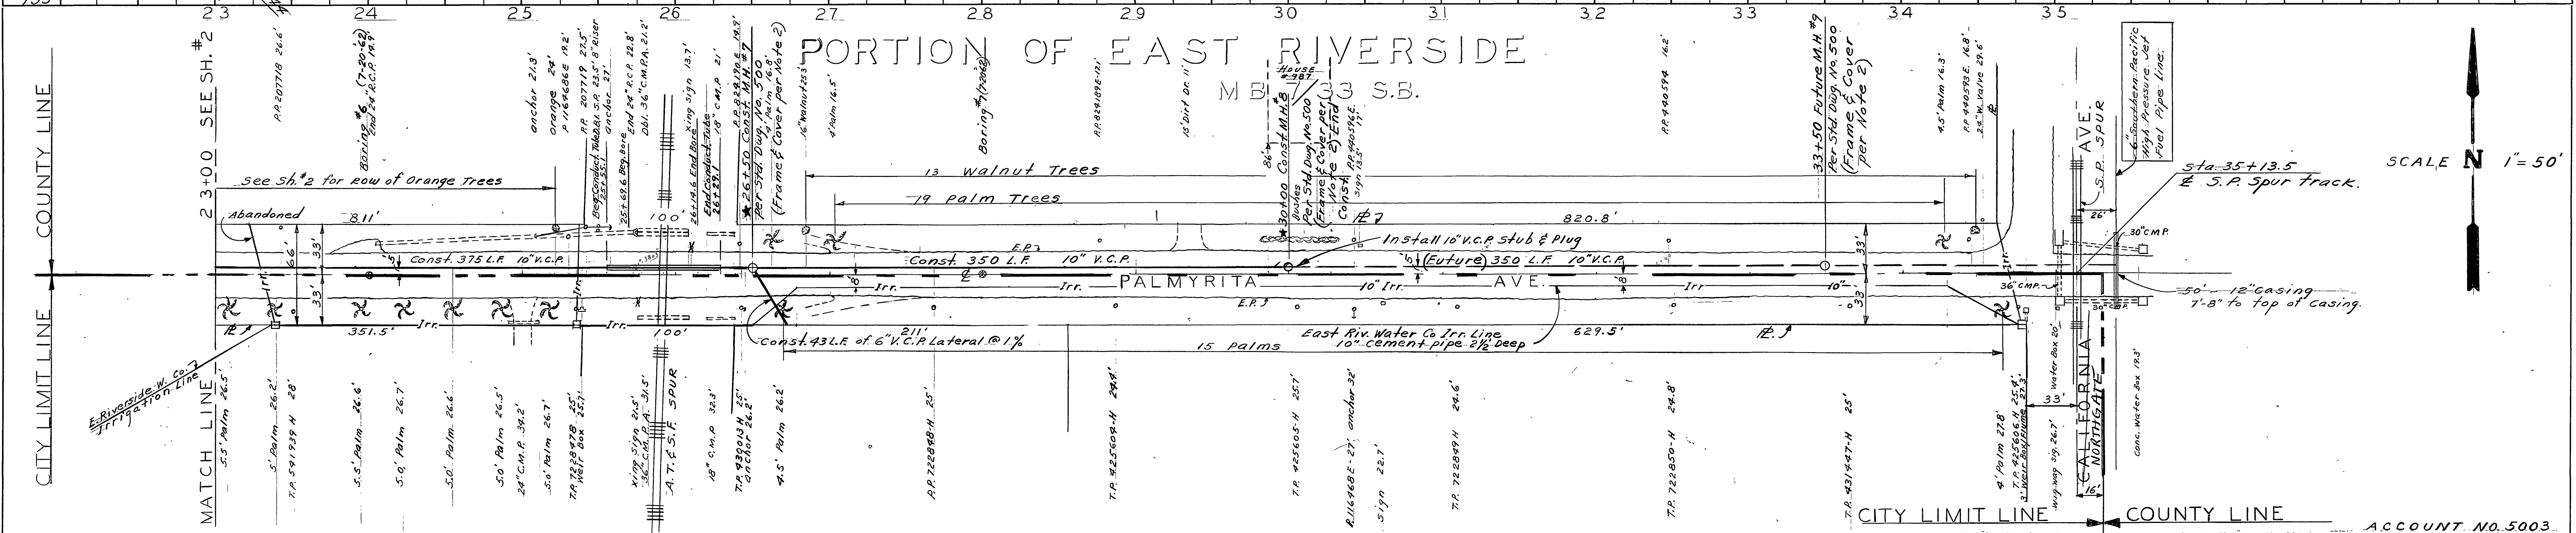 23 24 25 27 28 29 30 31 32 33 34 35
PORTION OF EAST RIVERSIDE
M B 7/33 S.B.
SCALE N 1"= 50'
COUNTY LINE
CITY LIMIT LINE
23+00 SEE SH. #2
MATCH LINE
P.P. 207718 26.6'
Boring #6 (7-20-62)
End 24" R.C.P. 19.9'
anchor 21.3'
orange 24'
P 1164686E 19.2'
P.P. 207719 27.5'
Beg. Conduct. Tube
25+55.1
anchor 27'
25+69.6 Beg. Bore
End 24" R.C.P. 22.8'
Dbl. 36" C.M.P.A. 21.2'
Xing sign 13.7'
26+14.6 End Bore
End Conduct. Tube
26+29.1
18" C.M.P. 21'
★26+50 Const. M.H. #7
Per Std. Dwg. No. 500
(Frame & Cover per Note 2)
4' Palm 16.8'
16" Walnut 25.3'
4' Palm 16.5'
P.P. 824189E-17.1'
15' Dirt Dr. 11'
House
#987
86'
★30+00 Const. M.H. 8
Bushes
Per Std. Dwg. No. 500
(Frame & Cover per
Note 2) End
Const.
P.P. 440596E
17'
Sign 13.5'
P.P. 440594 16.2'
33+50 Future M.H. #9
Per Std. Dwg. No. 500
(Frame & Cover
per Note 2)
4.5' Palm 16.3'
P.P. 440593E. 16.8'
24" W. Valve 29.6'
AVE.
S.P. SPUR
6" Southern Pacific
High Pressure Jet
Fuel Pipe Line.
Sta. 35+13.5
℄ S.P. Spur track.
See Sh. #2 for Row of Orange Trees
13 Walnut Trees
19 Palm Trees
Abandoned
811'
100'
820.8'
26'
66' 33' 33'
30" C.M.P.
E.P.
Install 10" V.C.P. Stub & Plug
Const. 375 L.F. 10" V.C.P.
Const. 350 L.F. 10" V.C.P.
(Future) 350 L.F. 10" V.C.P.
5'
8'
33'
Irr. Irr. PALMYRITA 10" Irr. AVE. Irr. 10"
36" C.M.P.
50' - 12" Casing
7'-8" to top of Casing.
30" C.M.P.
33'
E.P.
351.5' Irr. Irr. 100' 211' 629.5'
Const. 43 L.F. of 6" V.C.P. Lateral @ 1%
East Riv. Water Co Irr. Line
10" Cement pipe 2½' Deep
15 Palms
E. Riverside W. Co.
Irrigation Line
5.5' Palm 26.5'
5' Palm 26.2'
T.P. 541939 H 28'
5.5' Palm 26.6'
5.0' Palm 26.7'
5.0' Palm 26.6'
5.0' Palm 26.5'
24" C.M.P. 34.2'
5.0' Palm 26.7'
T.P. 722847B 25'
Weir Box 25.7'
Xing Sign 21.5'
36" C.M.P.A. 31.5'
A.T. & S.F. SPUR
18" C.M.P 32.3'
T.P. 430013 H 25'
anchor 26.2'
4.5' Palm 26.2'
P.P. 722848-H 25'
T.P. 425604-H 24.4'
T.P. 425605-H 25.7'
P. 116468 E-27' anchor 32'
Sign 22.7'
T.P. 722849 H 24.6'
T.P. 722850-H 24.8'
T.P. 431447-H 25'
4' Palm 27.8'
T.P. 425606 H 25.4'
3' Weir Box & Flume 27.3'
Wig-wag Sig. 26.7'
water Box 20'
33'
CALIFORNIA
NORTHGATE
16'
conc. water Box 19.3'
CITY LIMIT LINE
COUNTY LINE
ACCOUNT NO. 5003